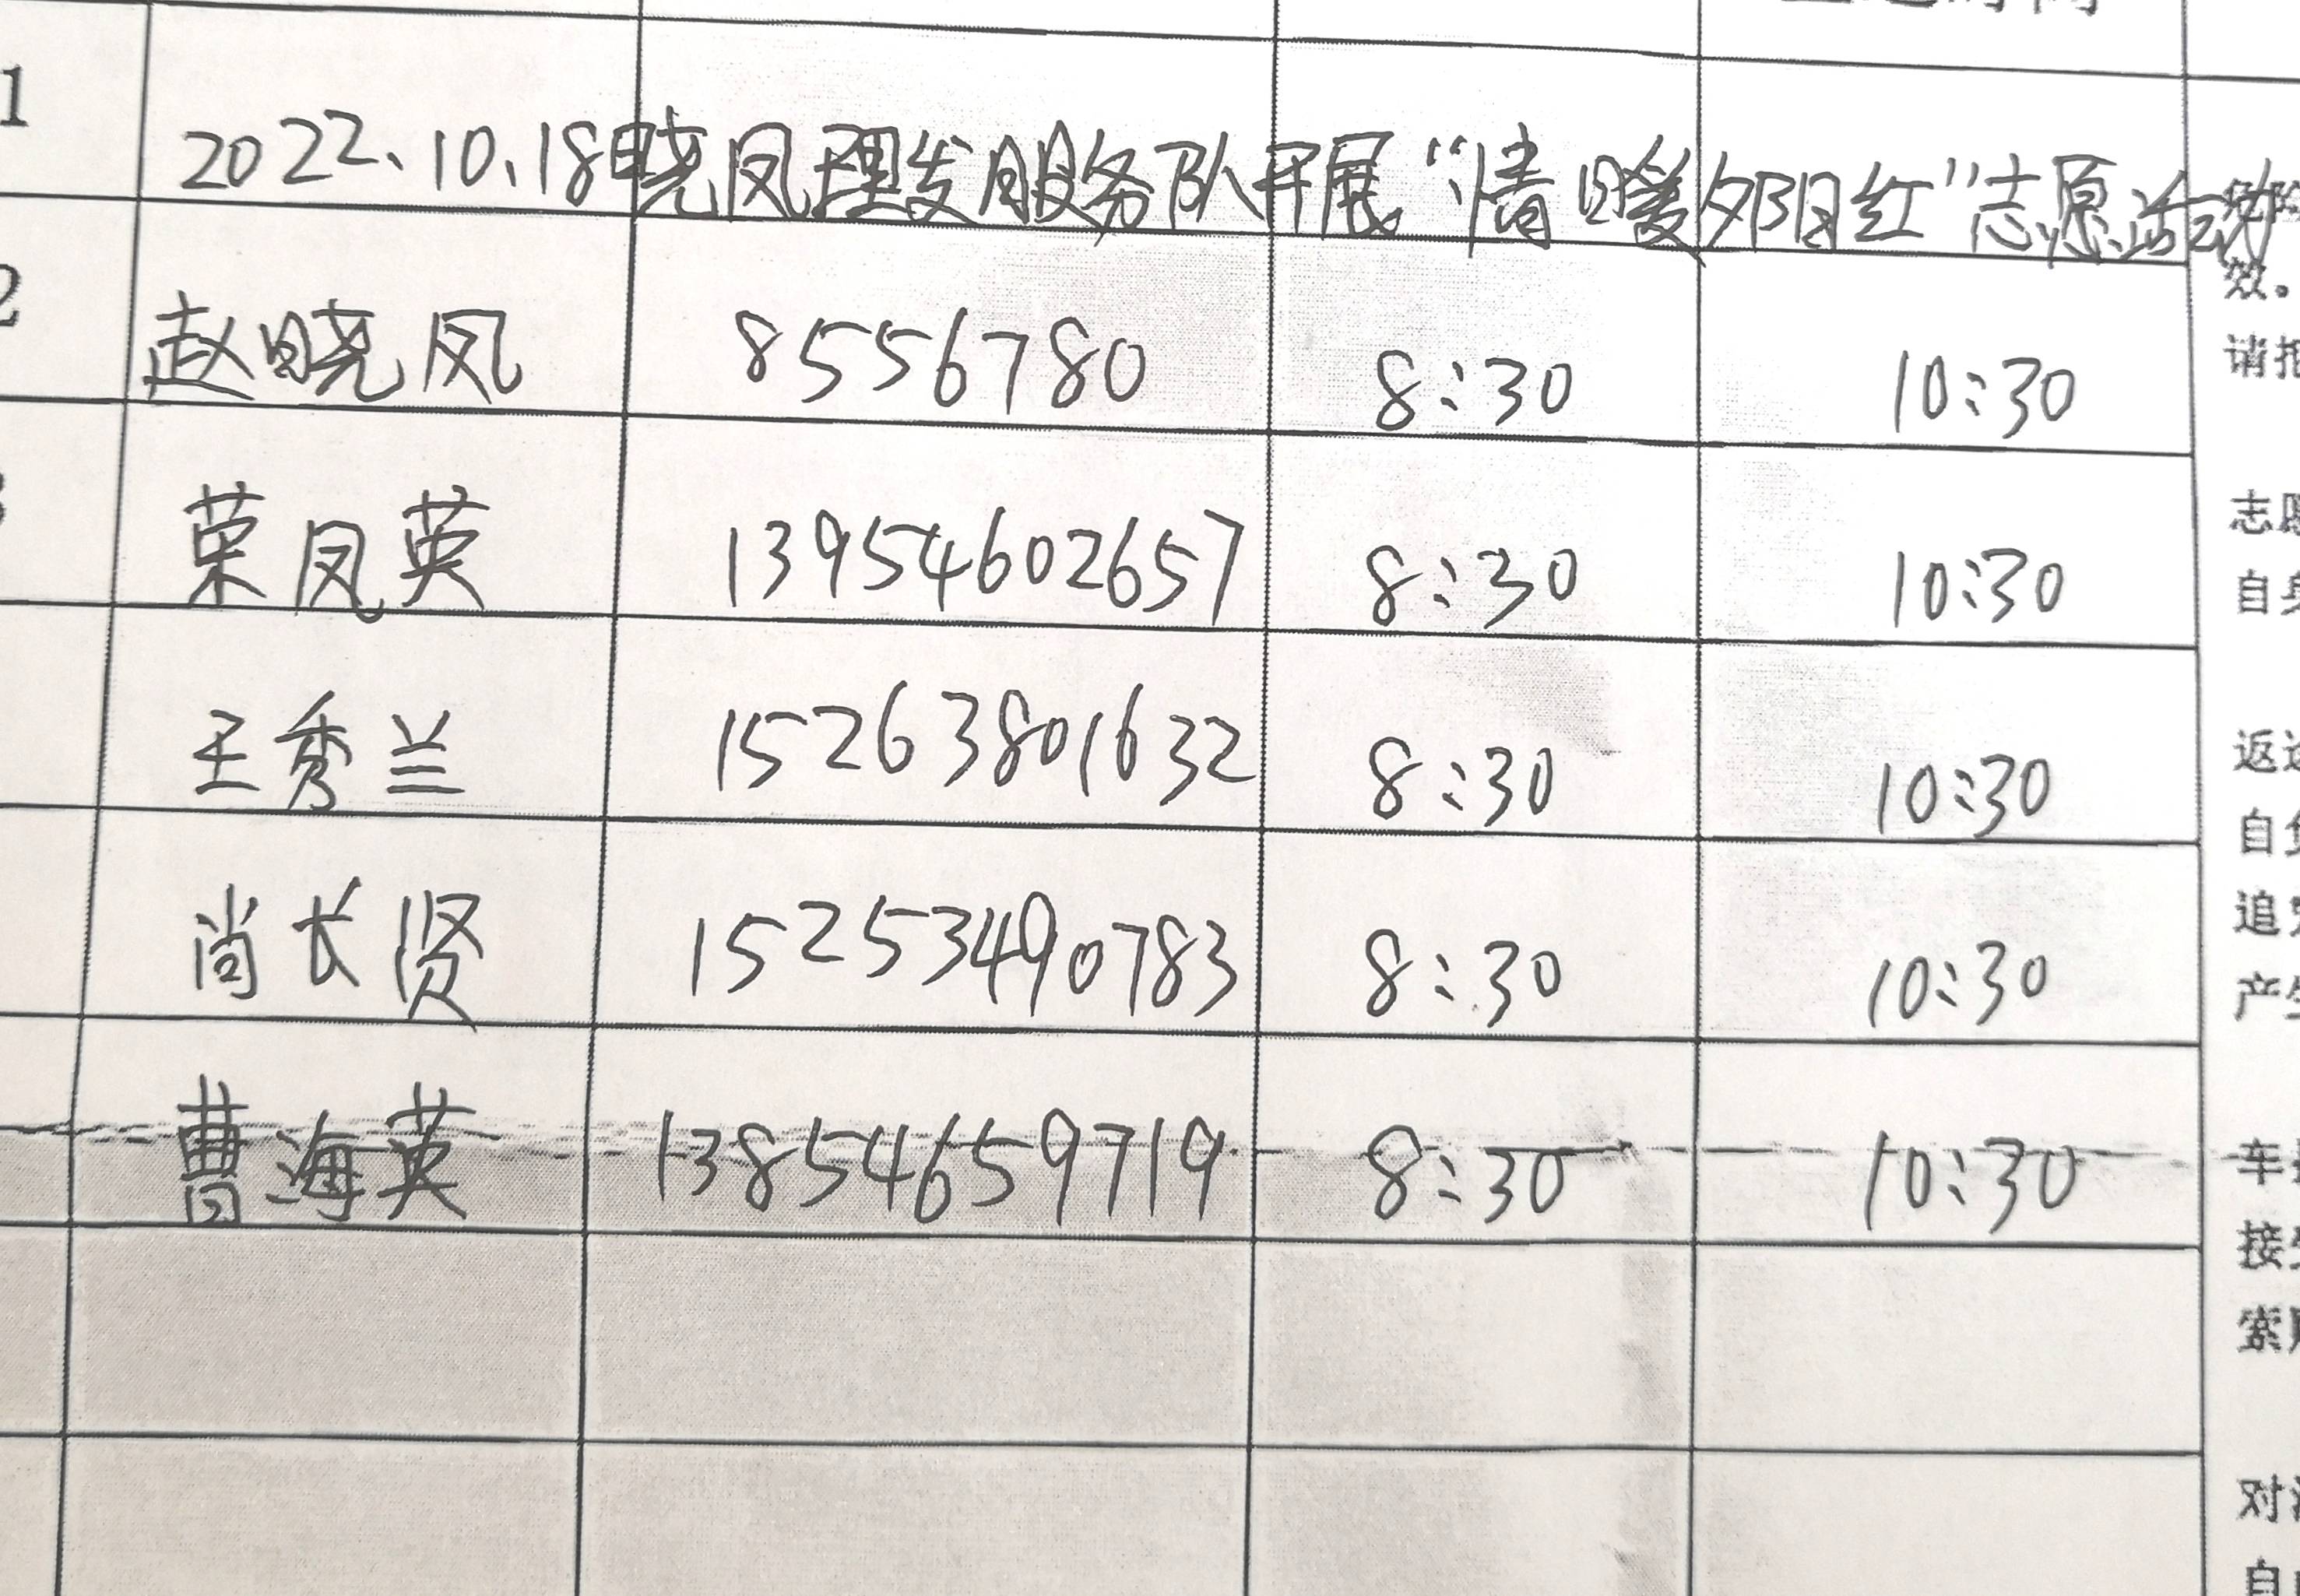 1 2022、10、18晓凤理发服务队开展“情暖夕阳红”志愿活动
效。
2 赵晓凤 8556780 8:30 10:30
请
荣凤英 13954602657 8:30 10:30
志愿
自身
王秀兰 15263801632 8:30 10:30
返
自负
尚长贤 15253490783 8:30 10:30
追究
产生
曹海英 13854659719 8:30 10:30
车
接受
索赔
对
自